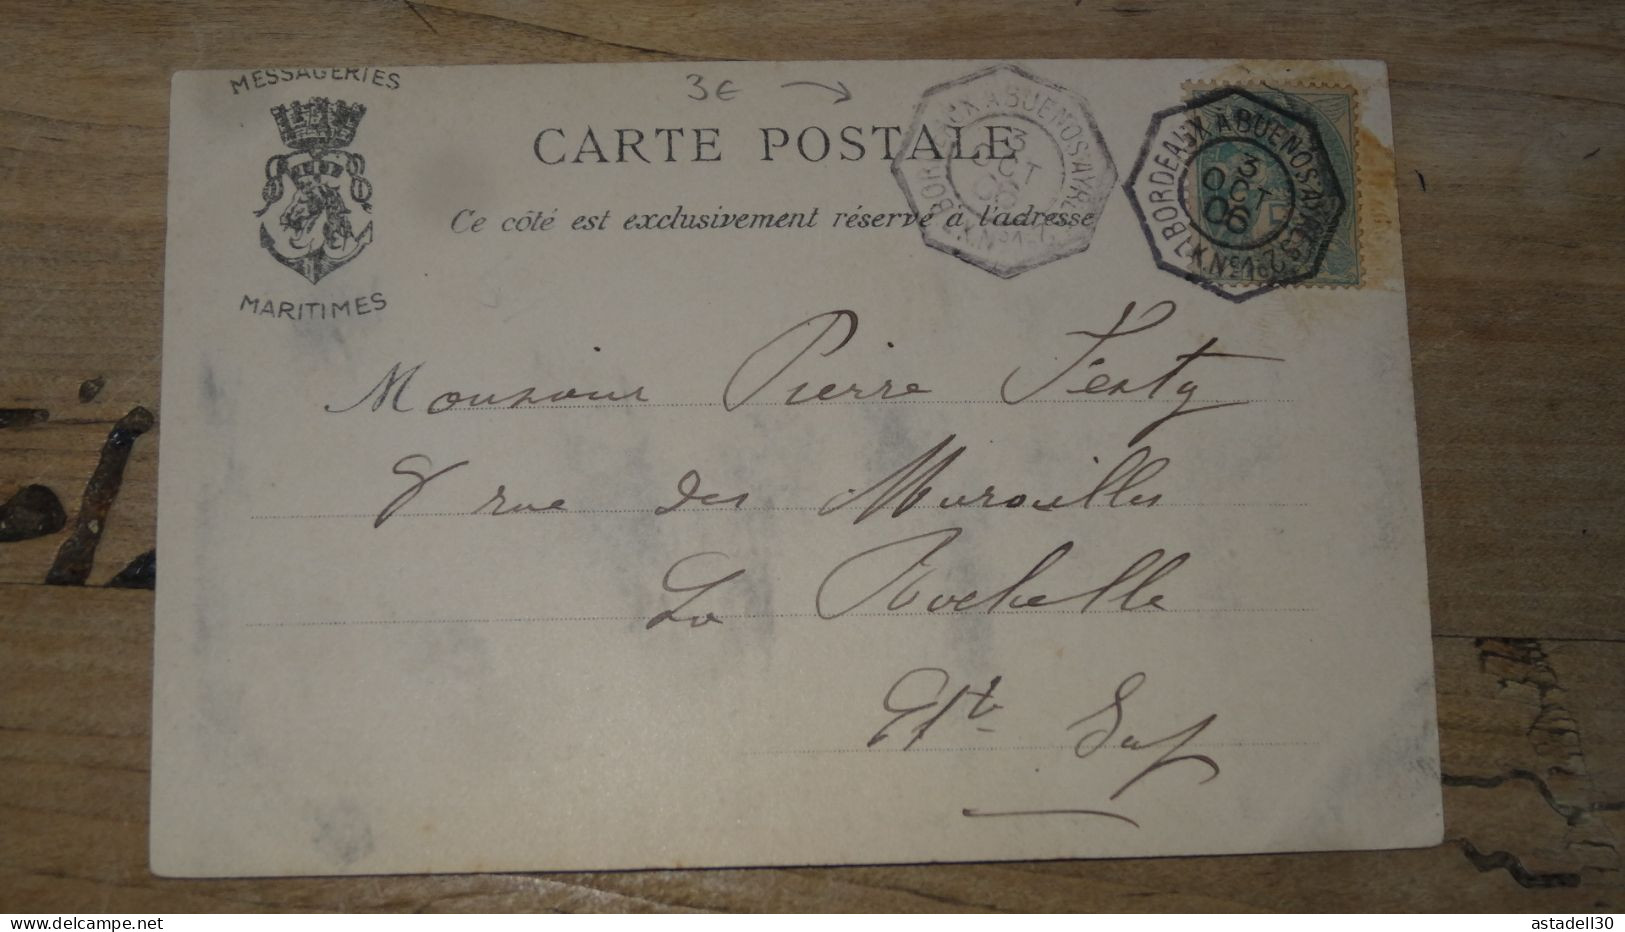 MESSAGERIES
MARITIMES
3€ →
CARTE POSTALE
Ce côté est exclusivement réservé à l'adresse
BORDEAUX A BUENOS-AYRES
3
OCT
06
BORDEAUX A BUENOS-AYRES
3
OCT
06
Monsieur Pierre
8 rue des Murailles
La Rochelle
Chte Inf
astadell30